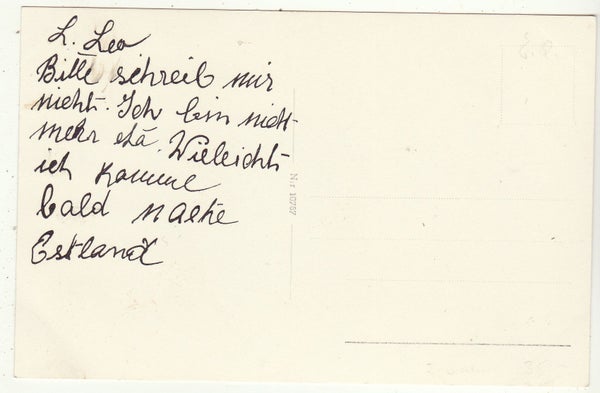 L. Leo
Bitte schreib mir
nicht. Ich bin nicht
mehr da. Wieleicht
ich komme
bald nache
Estland
Nr 10787